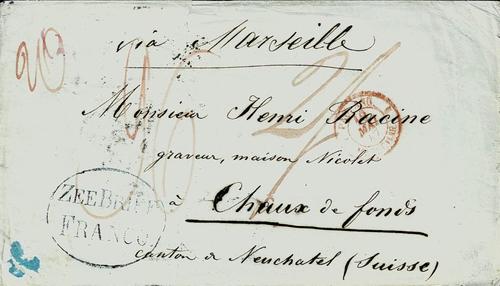 via Marseille
Monsieur Henri Racine
graveur, maison Nicolet
à Chaux de fonds
Canton de Neuchatel (Suisse)
ZEEBRIEF
FRANCO.